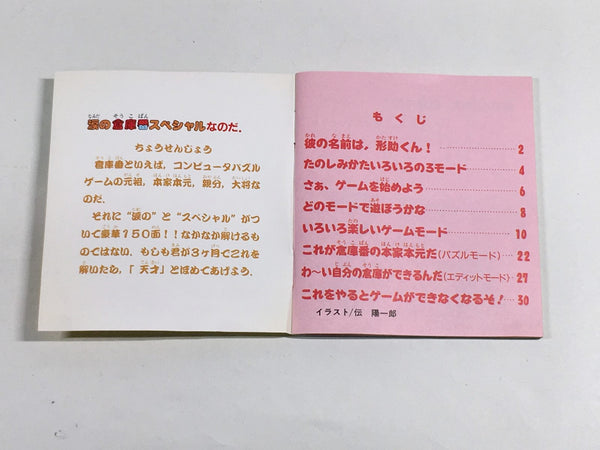 涙の倉庫番スペシャルなのだ.
ちょうせんじょう
倉庫番といえば, コンピュータパズル
ゲームの元祖, 本家本元, 親分, 大将な
のだ.
それに“涙の”と“スペシャル”がつ
いて豪華150面!! なかなか解けるも
のではない. もしも君が3ヶ月でこれを
解いたなら,「天才」とほめてあげよう.
もくじ
彼の名前は, 形助くん! 2
たのしみかたいろいろの3モード 4
さぁ, ゲームを始めよう 6
どのモードで遊ぼうかな 8
いろいろ楽しいゲームモード 10
これが倉庫番の本家本元だ(パズルモード) 22
わ〜い自分の倉庫ができるんだ(エディットモード) 27
これをやるとゲームができなくなるぞ! 30
イラスト/伝 陽一郎